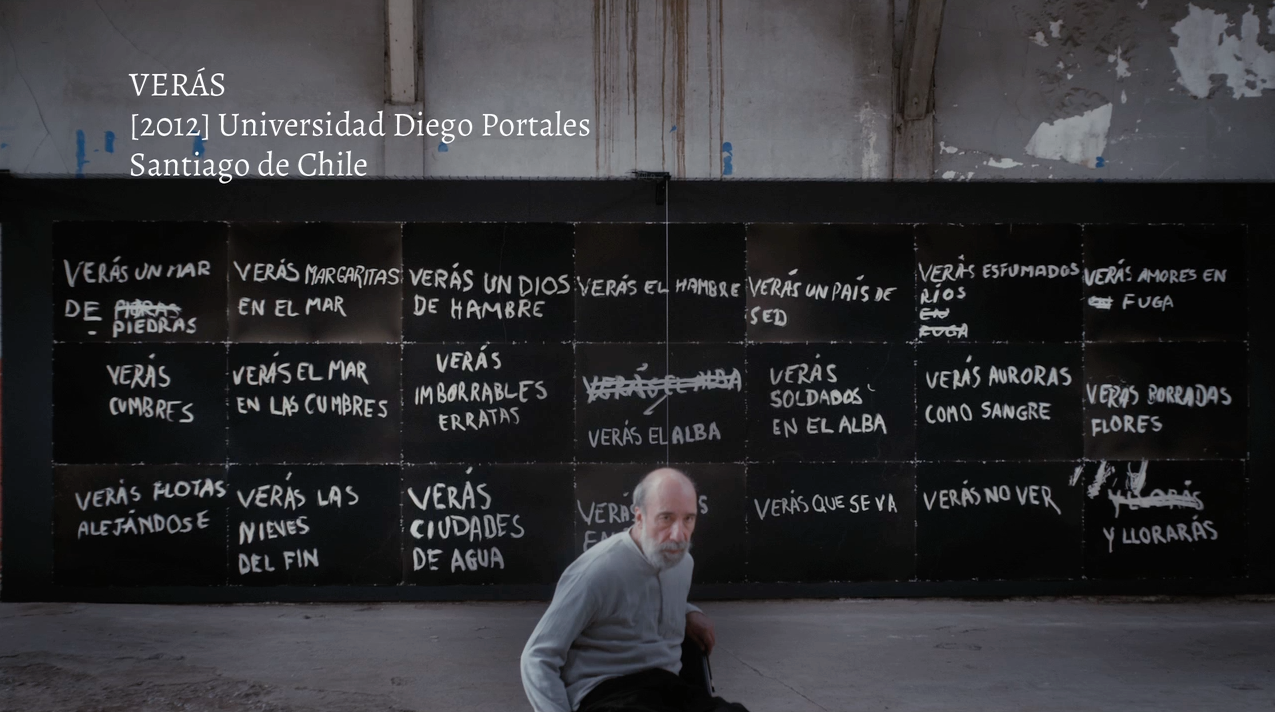 VERÁS
[2012] Universidad Diego Portales
Santiago de Chile
VERÁS UN MAR
DE PIEDRAS
VERÁS MARGARITAS
EN EL MAR
VERÁS UN DIOS
DE HAMBRE
VERÁS EL HAMBRE
VERÁS UN PAÍS DE
SED
VERÁS ESFUMADOS
RÍOS
EN
FUGA
VERÁS AMORES EN
FUGA
VERÁS
CUMBRES
VERÁS EL MAR
EN LAS CUMBRES
VERÁS
IMBORRABLES
ERRATAS
VERÁS EL ALBA
VERÁS EL ALBA
VERÁS
SOLDADOS
EN EL ALBA
VERÁS AURORAS
COMO SANGRE
VERÁS BORRADAS
FLORES
VERÁS FLOTAS
ALEJÁNDOSE
VERÁS LAS
NIEVES
DEL FIN
VERÁS
CIUDADES
DE AGUA
VERÁS
VERÁS QUE SE VA
VERÁS NO VER
Y LLORARÁS